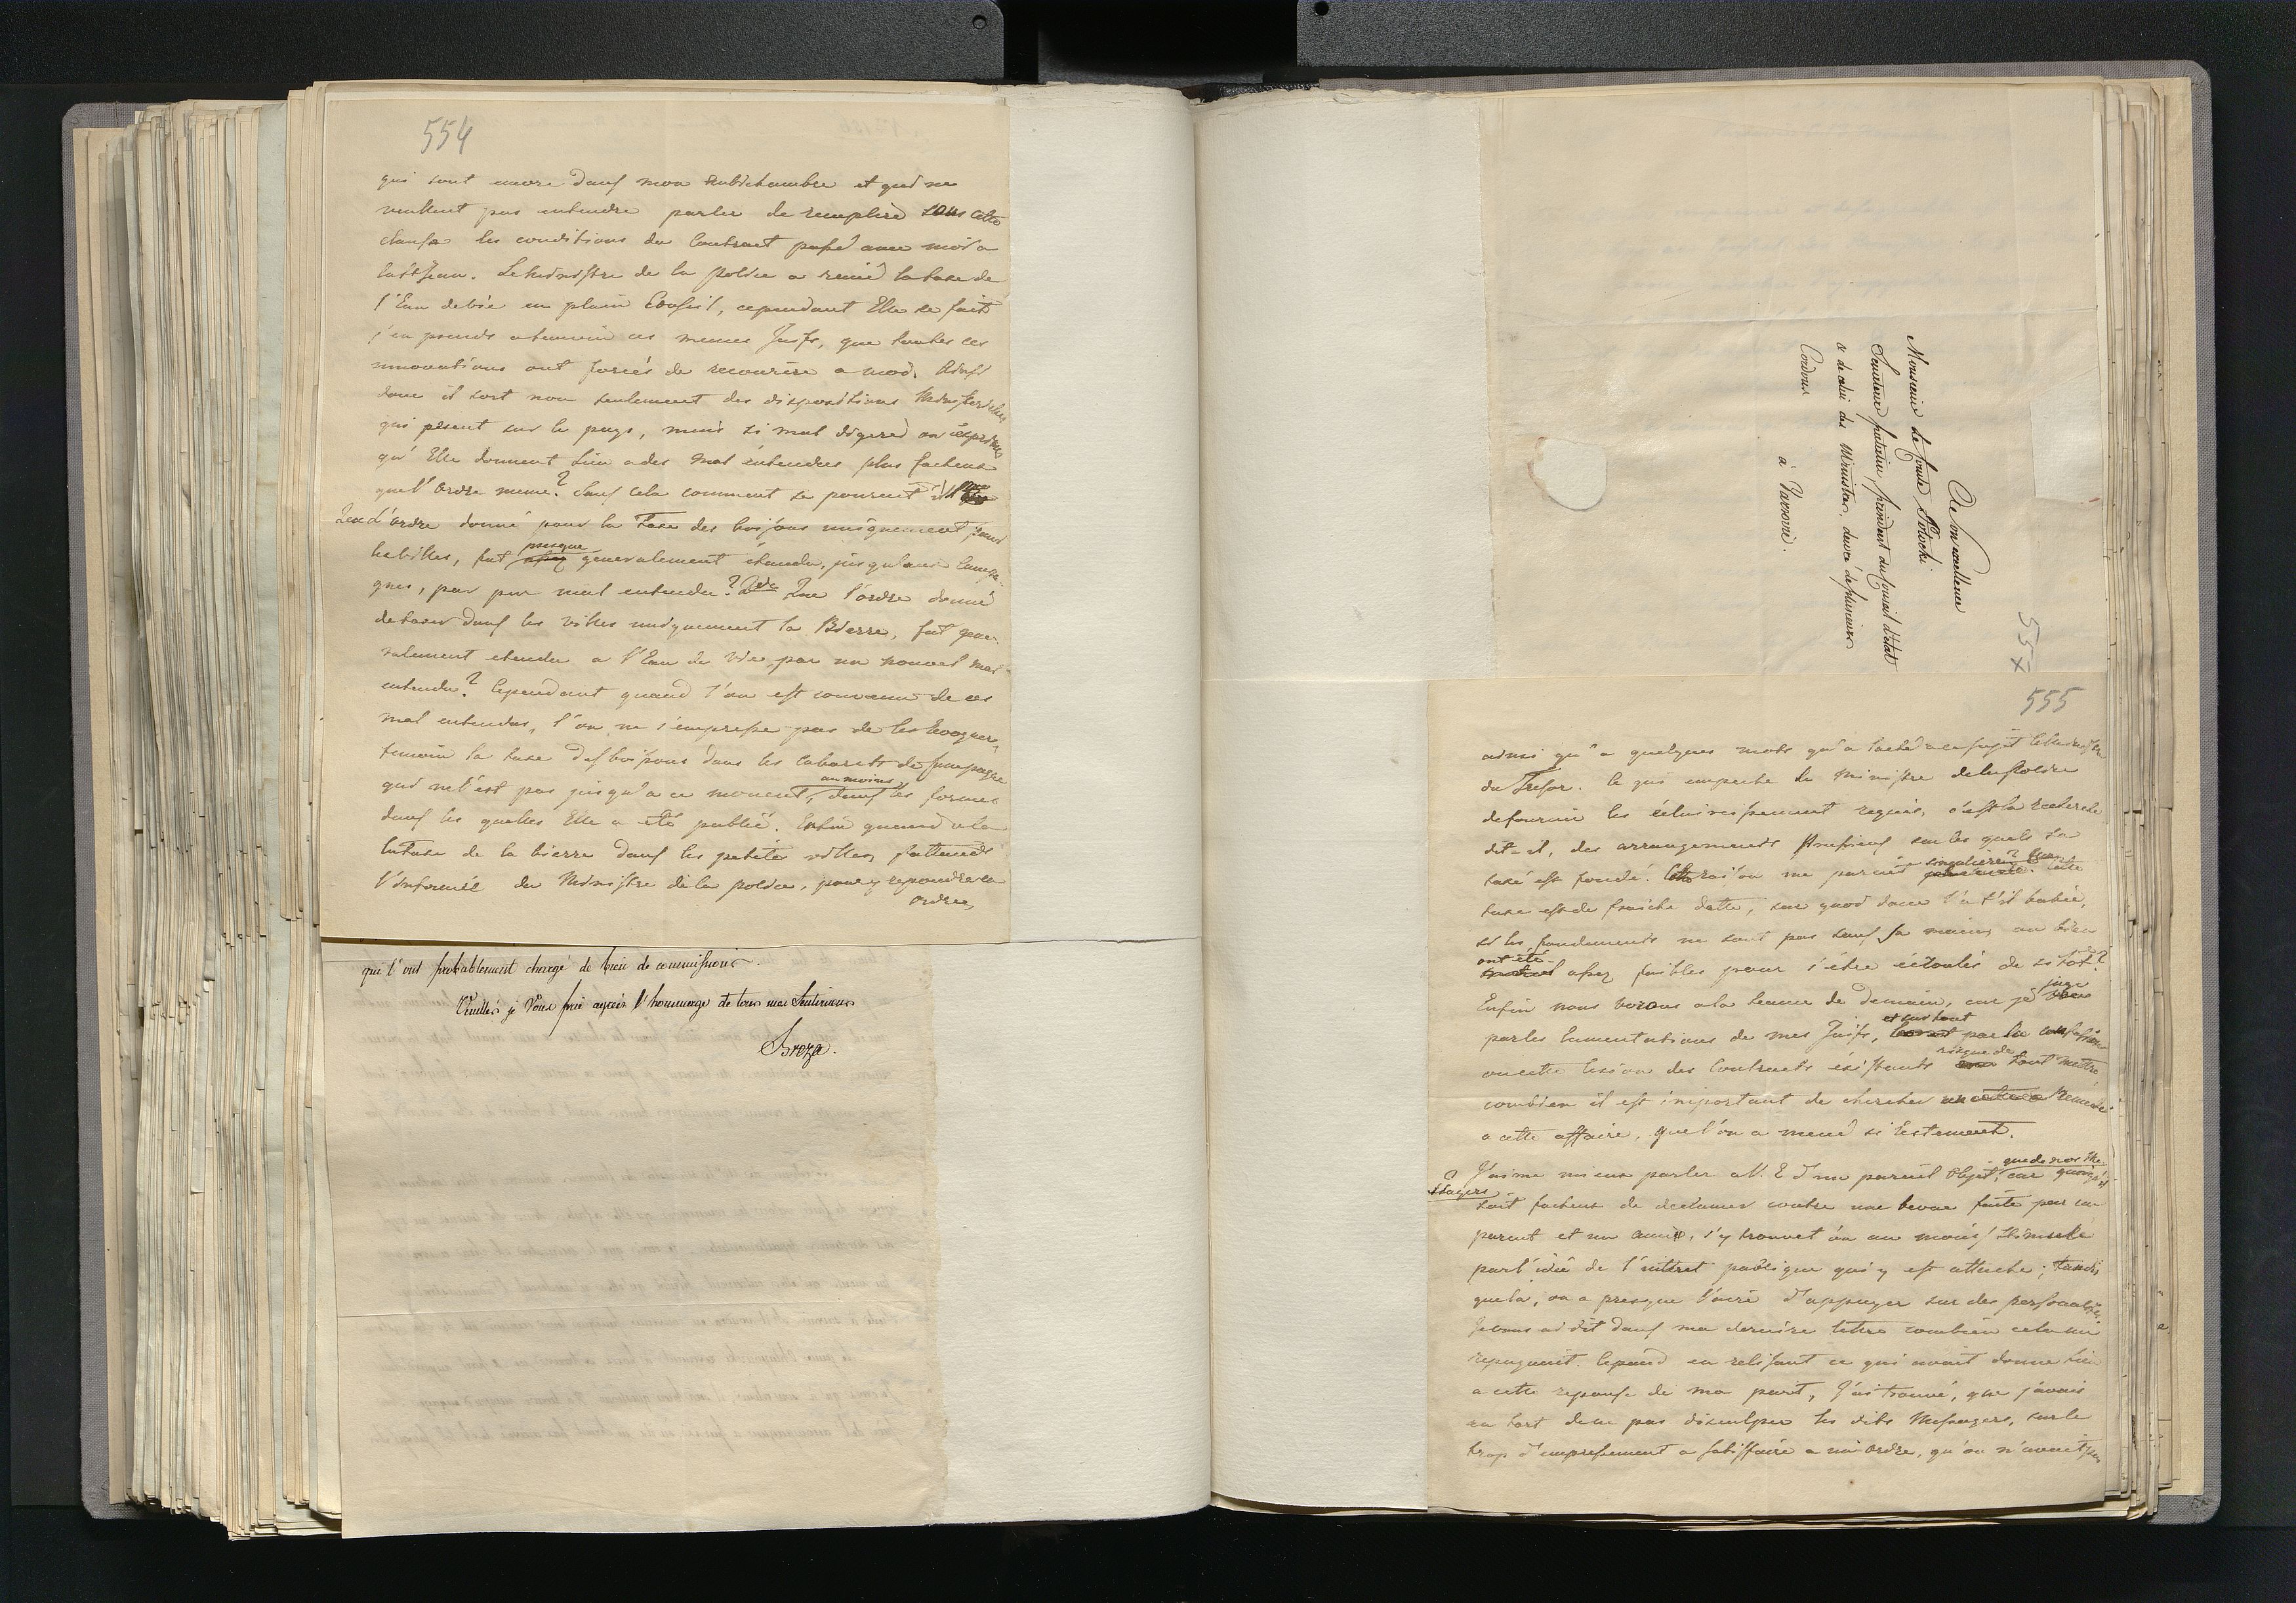 554
qui sont encore dans mon antichambre et qui ne
veullent pas entendre parler de remplire sous cette
clause les conditions du Contract passé avec moi a
la St Jean. Le Ministre de la Police a renié la taxe de
l'Eau de vie en plain Conseil, cependant Elle se fait
j'en prends a temoin ces memes Juifs, que toutes ces
innovations ont forcés de recourire a moi. Ainsi
donc il sort non seulement des dispositions Ministerielles
qui pesent sur le pays, mais si mal digeré ou exprimés
qu'Elle donnent lieu a des mal entendus plus facheux
que l'ordre meme? Sans cela comment se pourroit il
que L'ordre donné pour la Taxe des boissons uniquement pour
les villes, fut presque generalement étendu, jusqu'aux Campa-
gnes, par pur mal entendu? Que l'ordre donné
de taxer dans les villes uniquement la Bierre, fut gene-
ralement etendu a l'Eau de vie, par un nouvel mal
entendu? Cependant quand l'on est convenu de ces
mal entendus, l'on ne s'empresse pas de les revoquer,
temoin la taxe des boissons dans les Cabarets de Campagne
qui ne l'est pas jusqu'a ce moment, au moins, dans les formes
dans les quelles Elle a été publié. Enfin quand a la
la taxe de la bierre dans les petites villes, j'attends
l'informé du Ministre de la police, pour y repondre en
ordre,
qui l'ont probablement chargé de bien de commissions.
Veuillés je Vous prie agréer l'hommage de tous mes Sentimens
Broza.
A Son excellence
Monsieur le Comte Potocki
Senateur palatin, président du Conseil d'état
& de celui des Ministres, decoré de plusieurs
Cordons
à Varsovie.
557
555
ainsi qu'a quelques mots qu'a laché a ce sujet le Ministre
du Tresor. Ce qui empeche le Ministre de la Police
de fournir les éclaircissement requis, c'est la recherche,
dit-il, des arrangements Prussiens sur les quels la
taxe est fondé. raison me parait singuliere? Car cette
taxe est de fraiche datte, sur quoi donc l'a t'il basée,
si les fondements ne sont pas sous sa main, ou bien
ont été assez faibles pour s'être écroulés de si tôt?
Enfin nous verons a la tenue de Demain, car je juge
par les lamentations de mes Juifs, et surtout par la confusion
ou cette lesion des Contracts existants risque de tout mettre
combien il est important de chercher remede
a cette affaire, que l'on a mené si lestement.
J'aime mieux parler a V. E d'un pareil objet, que de nos Me-
ssagers car quoiqu'il
soit facheux de declamer contre une bevue faite par un
parent et un ami, s'y trouvet on au moins stimulé
par l'idée de l'interet publique qui y est attaché; tandis
que la, on a presque l'aire d'appuyer sur des personalités.
Je vous ai dit dans ma derniere lettre combien cela me
repugnait. Cepend en relisant ce qui avait donné lieu
a cette reponse de ma part, j'ai trouvé, que j'avais
eu tort de ne pas disculper les dits Messagers, sur le
trop d'empressement a satisfaire a un ordre, qu'on n'avait pas